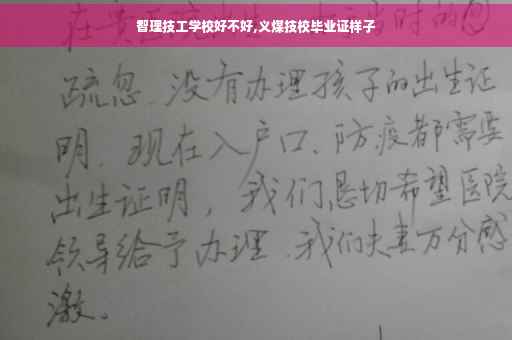 智理技工学校好不好,义煤技校毕业证样子
疏忽、没有办理孩子的出生证
明、现在入户口、防疫都需要
出生证明，我们恳切希望医院
领导给予办理、我们夫妻万分感
激。